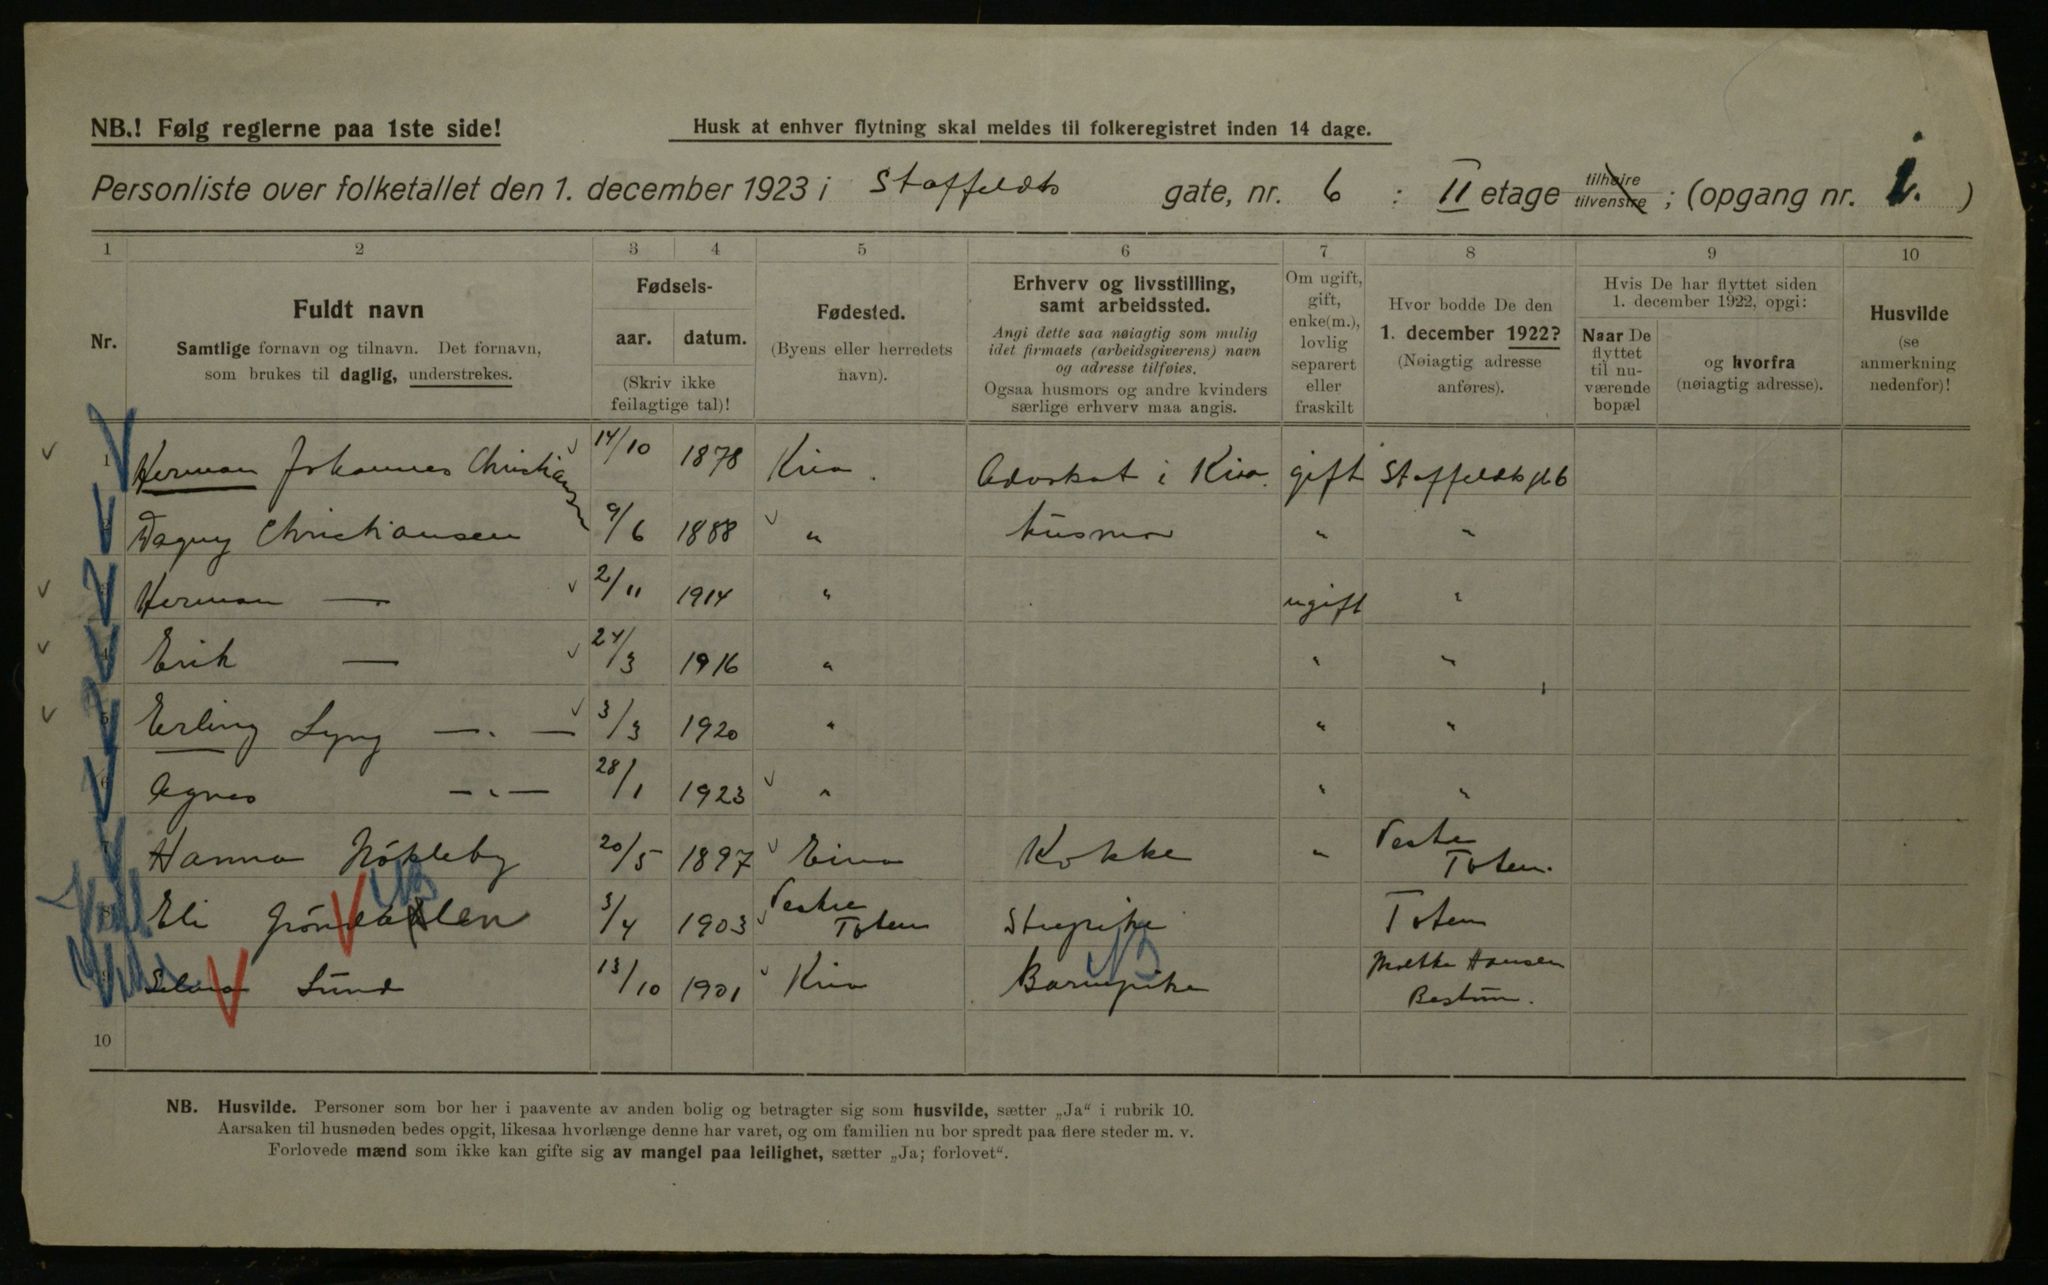 NB.! Følg reglerne paa 1ste side!
Husk at enhver flytning skal meldes til folkeregistret inden 14 dage.
Personliste over folketallet den 1. december 1923 i Staffeldts gate, nr. 6 : II etage tilhøire tilvenstre ; (opgang nr. 1. )
1 2 3 4 5 6 7 8 9 10
Nr.
Fuldt navn
Samtlige fornavn og tilnavn. Det fornavn,
som brukes til daglig, understrekes.
Fødsels-
aar. datum.
(Skriv ikke
feilagtige tal)!
Fødested.
(Byens eller herredets
navn).
Erhverv og livsstilling,
samt arbeidssted.
Angi dette saa nøiagtig som mulig
idet firmaets (arbeidsgiverens) navn
og adresse tilføies.
Ogsaa husmors og andre kvinders
særlige erhverv maa angis.
Om ugift,
gift,
enke(m.),
lovlig
separert
eller
fraskilt
Hvor bodde De den
1. december 1922?
(Nøiagtig adresse
anføres).
Hvis De har flyttet siden
1. december 1922, opgi:
Naar De
flyttet
til nu-
værende
bopæl
og hvorfra
(nøiagtig adresse).
Husvilde
(se
anmerkning
nedenfor)!
1 Herman Johannes Christiansen 14/10 1878 Kria. Advokat i Kria. gift Staffeldts gt 6
Dagny Christiansen 9/6 1888 " Husmor " "
Herman — 2/11 1914 " ugift "
4 Erik — 24/3 1916 " " "
5 Erling Lyng —"— 3/3 1920 " " "
6 Agnes —"— 28/1 1923 " " "
7 Hanna Nøkleby 20/5 1897 Eina Kokke " Vestre Toten.
8 Eli Grøndalen 3/4 1903 Vestre Toten Stuepike Toten
9 Lund 13/10 1901 Kria Barnepike Hansen
Bestum.
10
NB. Husvilde. Personer som bor her i paavente av anden bolig og betragter sig som husvilde, sætter „Ja“ i rubrik 10.
Aarsaken til husnøden bedes opgit, likesaa hvorlænge denne har varet, og om familien nu bor spredt paa flere steder m. v.
Forlovede mænd som ikke kan gifte sig av mangel paa leilighet, sætter „Ja; forlovet“.